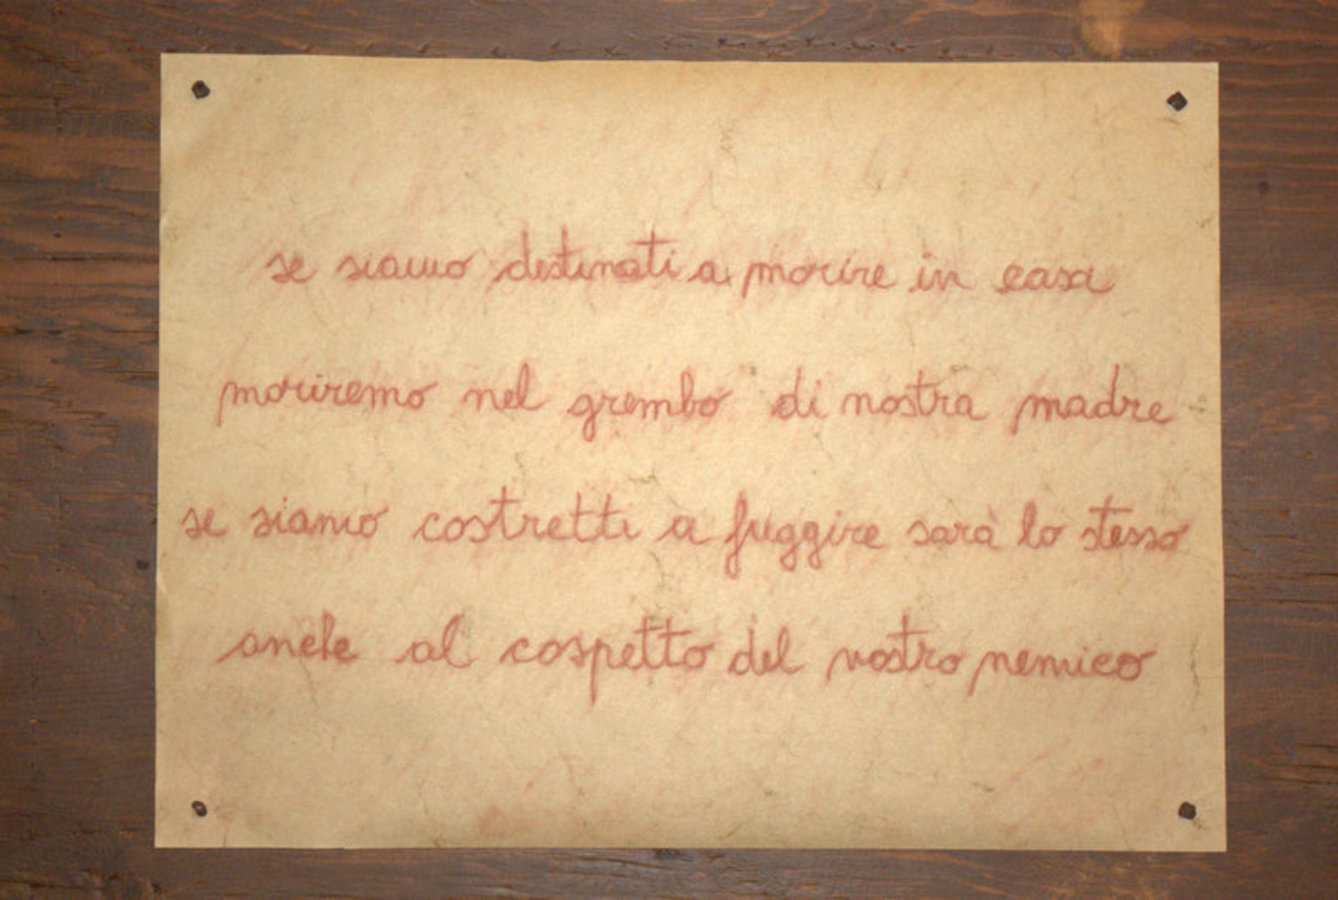 se siamo destinati a morire in casa
moriremo nel grembo di nostra madre
se siamo costretti a fuggire sarà lo stesso
anche al cospetto del nostro nemico